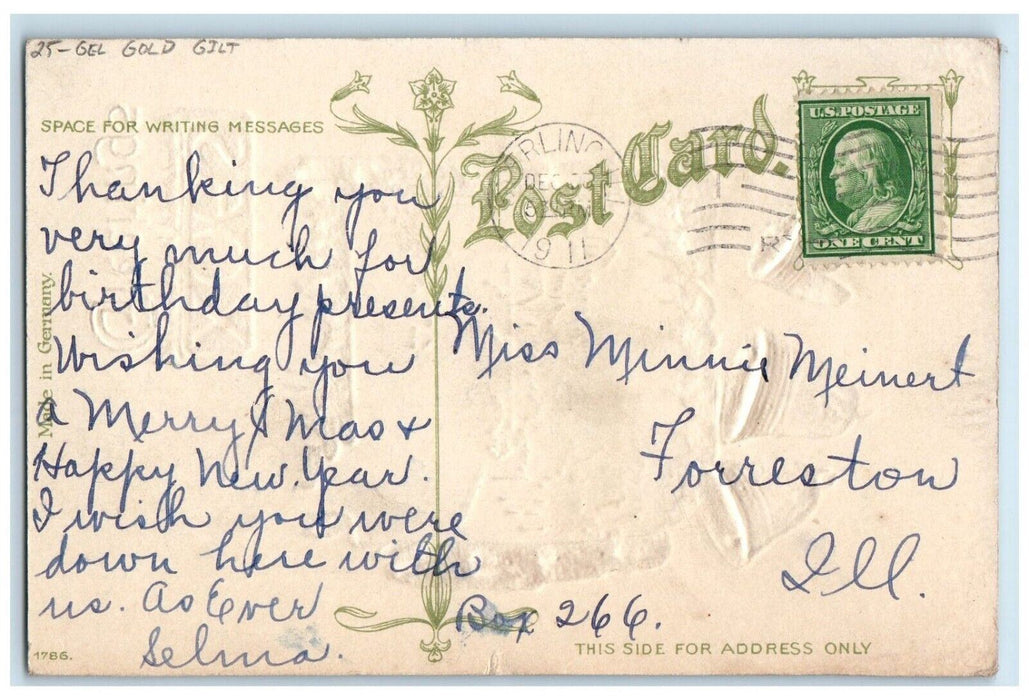 25- GEL GOLD GILT
SPACE FOR WRITING MESSAGES
Post Card.
U.S. POSTAGE
ONE CENT
DEC
1911
Thanking you
very much for
birthday presents.
Wishing you
a Merry Xmas &
Happy New Year.
I wish you were
down here with
us. As Ever
Selma.
Made in Germany.
1786.
Miss Minnie Meinert
Forreston
Ill.
Box 266.
THIS SIDE FOR ADDRESS ONLY